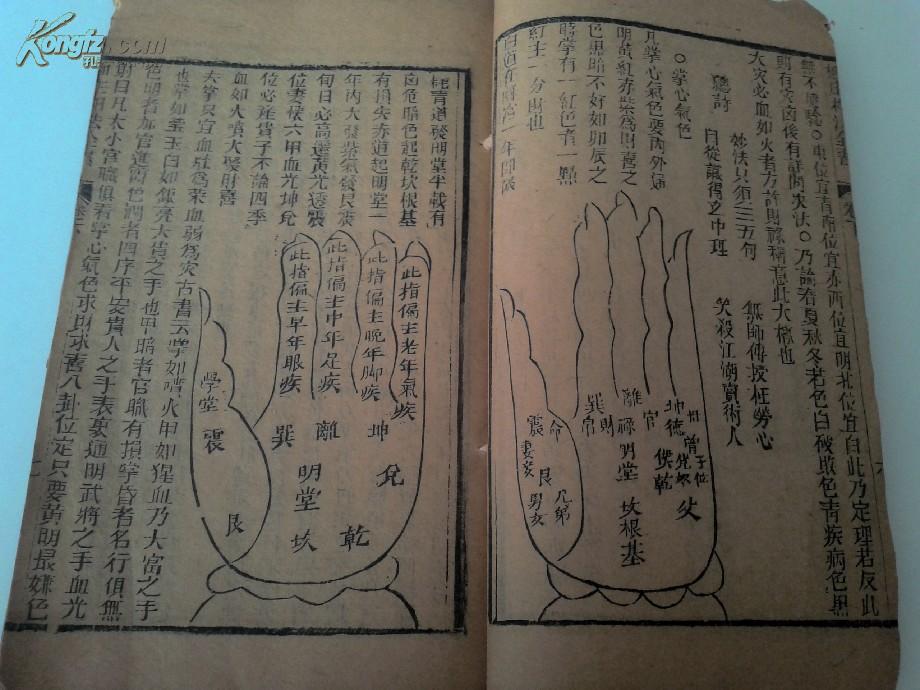 Kongfz.com
無不應驗○東位宜青南位宜赤西位宜明北位宜白此乃定理若反此
則有奇凶後有詩問災法○乃論春夏秋冬若色白破敗色青疾病色黑
大灾必血如火者方許財祿稱意此大槪也
總詩
妙法只須三五句
無師傳授枉勞心
自從識得之中理
笑殺江湖賣術人
○掌心氣色
凡掌心氣色要內外通
明黃紅赤紫爲財喜之
色黑暗不好如卯辰之
時掌有一紅色者一點
紅主一分財也
坤德
兌奴
子位
僕乾
父
官
離祿
明堂
坎根基
巽
財
命
震
妻妾
艮
兄弟
男女
凶危暗色起乾坎根基
有損失赤道起明堂一
年內大發紫氣發艮震
旬日必高遷黃光透震
位妻懷六甲血光坤兌
位必産貴子不論四季
血如火噴大發財喜
此指偏主老年氣疾
此指偏主晚年脚疾
此指偏主中年足疾
此指偏主早年眼疾
兌
坤
離
巽
明堂
乾
坎
學堂
震
艮
夫掌只宜血壯爲榮血弱爲灾古書云掌如噴火甲如猩血乃大富之手
也掌如瑩玉白如銀亮大貴之手也甲暗者官職有損掌昏者名行俱無
色明者加官進爵色潤者四序平安貴人之手表裏通明武將之手血光
射日凡大小官職俱看掌心氣色求財求喜八卦位定只要黃明最嫌色